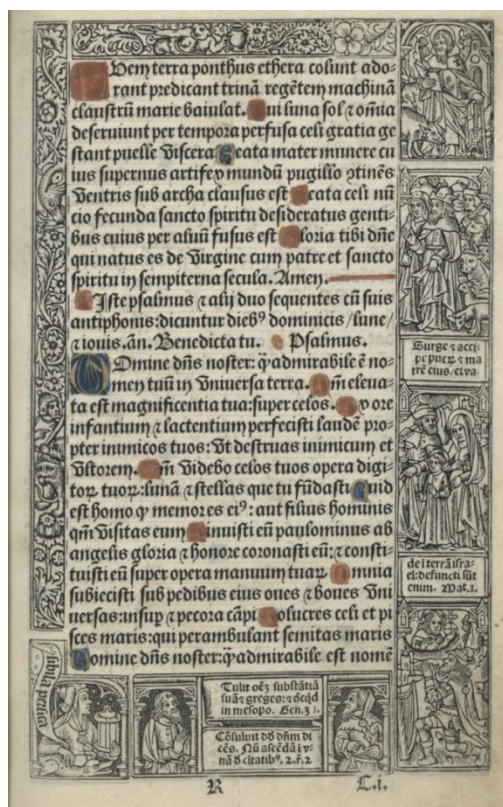 Vem terra ponthus ethera colunt ado-
rant predicant trinā regētem machinā
claustrū marie baiulat. Cui luna sol ⁊ om̄ia
deseruiunt per tempora perfusa celi gratia ge
stant puelle Viscera Beata mater munere cu
ius supernus artifex mundū pugillo ↄtinēs
Ventris sub archa clausus est Beata celi nū
cio fecunda sancto spiritu desideratus genti-
bus cuius per aluū fusus est Gloria tibi dn̄e
qui natus es de Virgine cum patre et sancto
spiritu in sempiterna secula. Amen.
Iste psalmus ⁊ alij duo sequentes cū suis
antiphonis: dicuntur dieb⁹ dominicis /lune/
⁊ iouis. an. Benedicta tu. Psalmus.
Domine dn̄s noster: q̄ admirabile ē no-
men tuū in Vniversa terra. Qm̄ eleua-
ta est magnificentia tua: super celos. Ex ore
infantium ⁊ lactentium perfecisti laudē pro-
pter inimicos tuos: Vt destruas inimicum et
Vltorem. Qm̄ Videbo celos tuos opera digi-
toꝝ tuoꝝ: lunā ⁊ stellas que tu fūdasti Quid
est homo ꝙ memor es ei⁹: aut filius hominis
qm̄ Visitas eum Minuisti eū paulominus ab
angelis gloria ⁊ honore coronasti eū: ⁊ consti-
tuisti eū super opera manuum tuaꝝ Omnia
subiecisti sub pedibus eius oues ⁊ boues Vni
uersas: insuꝑ ⁊ pecora cāpi Volucres celi et pi
sces maris: qui perambulant semitas maris
Domine dn̄s noster: q̄ admirabile est nomē
Surge ⁊ acci
pe pueꝝ ⁊ ma
trē eius, et va.
de ī terrā isra-
el: defuncti sūt
enim. Mat. 1.
sibila persica
Tulit oēꝫ substātiā
suā ⁊ greges: ⁊
in mesopo. Gen. 31.
Cōsuluit dd dn̄m di
cēs. Nū ascēdā ī v-
nā d̄ citatib⁹. 2. r. 2
R
L.i.